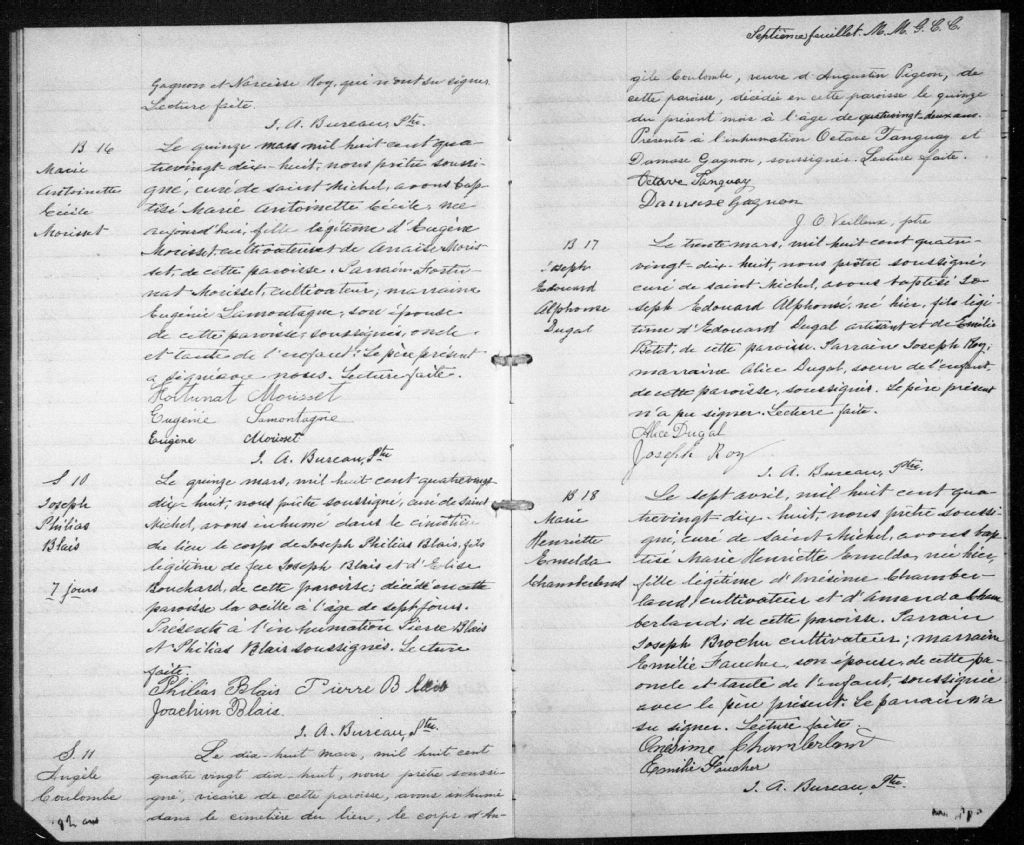 Gagnon et Narcisse Roy, qui n'ont su signer.
Lecture faite.
J. A. Bureau, Ptre.
B 16
Marie
Antoinette
Cécile
Morisset
Le quinze mars mil huit cent qua-
trevingt dix-huit, nous prêtre soussi-
gné, curé de saint Michel, avons bap-
tisé Marie Antoinette Cécile, née
aujourd'hui, fille légitime d'Eugène
Morisset cultivateur et de Anaïse Moris-
set, de cette paroisse. Parrain Fortu-
nat Morisset, cultivateur; marraine
Eugénie Lamontagne, son épouse
de cette paroisse, soussignés, oncle
et tante de l'enfant. Le père présent
a signé avec nous. Lecture faite.
Fortunat Morisset
Eugénie Lamontagne
Eugène Morisset
J. A. Bureau, Ptre
S 10
Joseph
Philias
Blais
7 jours
Le quinze mars, mil huit cent quatrevingt
dix-huit, nous prêtre soussigné, curé de saint
Michel, avons inhumé dans le cimetière
du lieu le corps de Joseph Philias Blais, fils
légitime de feu Joseph Blais et d'Elise
Bouchard, de cette paroisse; décédé en cette
paroisse la veille à l'âge de sept jours.
Présents à l'inhumation Pierre Blais
& Philias Blais soussignés. Lecture
faite.
Philias Blais Pierre Blais
Joachim Blais
J. A. Bureau, Ptre.
S. 11
Angèle
Coulombe
82 ans
Le dix-huit mars, mil huit cent
quatre vingt dix-huit, nous prêtre soussi-
gné, vicaire de cette paroisse, avons inhumé
dans le cimetière du lieu, le corps d'An-
Septième feuillet. M. M. G. C. C.
gèle Coulombe, veuve d'Augustin Pigeon, de
cette paroisse, décédée en cette paroisse le quinze
du présent mois à l'âge de quatrevingt-deux ans.
Présents à l'inhumation Octave Tanguay et
Damase Gagnon, soussignés. Lecture faite.
Octave Tanguay
Damase Gagnon
J. O. Veilleux, ptre
B 17
Joseph
Edouard
Alphonse
Dugal
Le trente mars, mil huit cent quatre-
vingt-dix-huit, nous prêtre soussigné,
curé de saint Michel, avons baptisé Jo-
seph Edouard Alphonse, né hier, fils légi-
time d'Edouard Dugal artisan et de Emilie
Petet, de cette paroisse. Parrain Joseph Roy;
marraine Alice Dugal, soeur de l'enfant,
de cette paroisse, soussignés. Le père présent
n'a pu signer. Lecture faite.
Alice Dugal
Joseph Roy
J. A. Bureau, Ptre.
B 18
Marie
Henriette
Esmelda
Chamberland
Le sept avril, mil huit cent qua-
trevingt dix-huit, nous prêtre soussi-
gné, curé de saint Michel, avons bap-
tisé Marie Henriette Esmelda, née hier,
fille légitime d'Onésime Chamber-
land, cultivateur et d'Amanda Cham-
berland; de cette paroisse. Parrain
Joseph Brochu cultivateur; marraine
Emilie Faucher, son épouse, de cette pa-
oncle et tante de l'enfant, soussignée
avec le père présent. Le parrain n'a
su signer. Lecture faite.
Onésime Chamberland
Emilie Faucher
J. A. Bureau, Ptre.